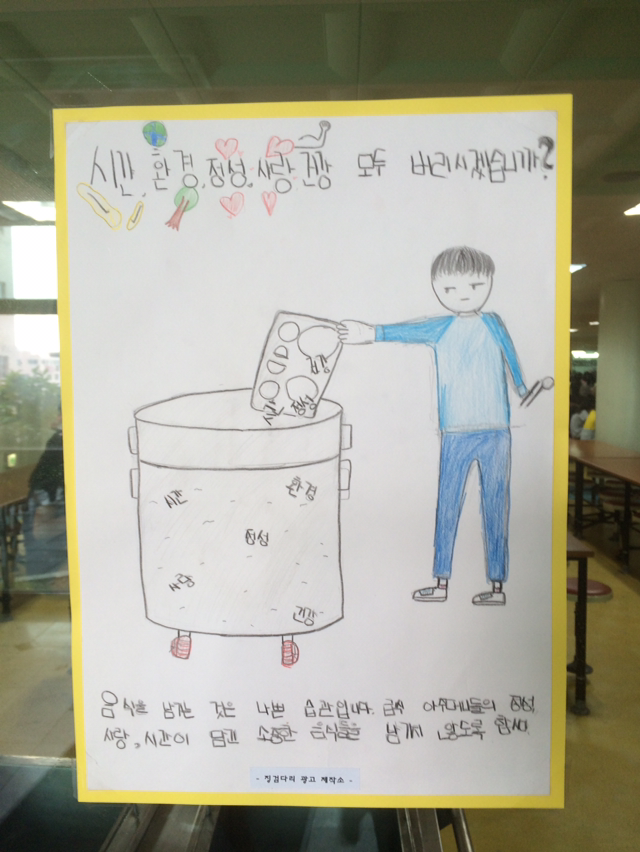 시간, 환경, 정성, 사랑, 건강 모두 버리시겠습니까?
건강
시간 정성
시간 환경
정성
사랑
건강
음식을 남기는 것은 나쁜 습관입니다. 급식 아주머니들의 정성,
사랑, 시간이 담긴 소중한 음식들을 남기지 않도록 합시다.
- 징검다리 광고 제작소 -